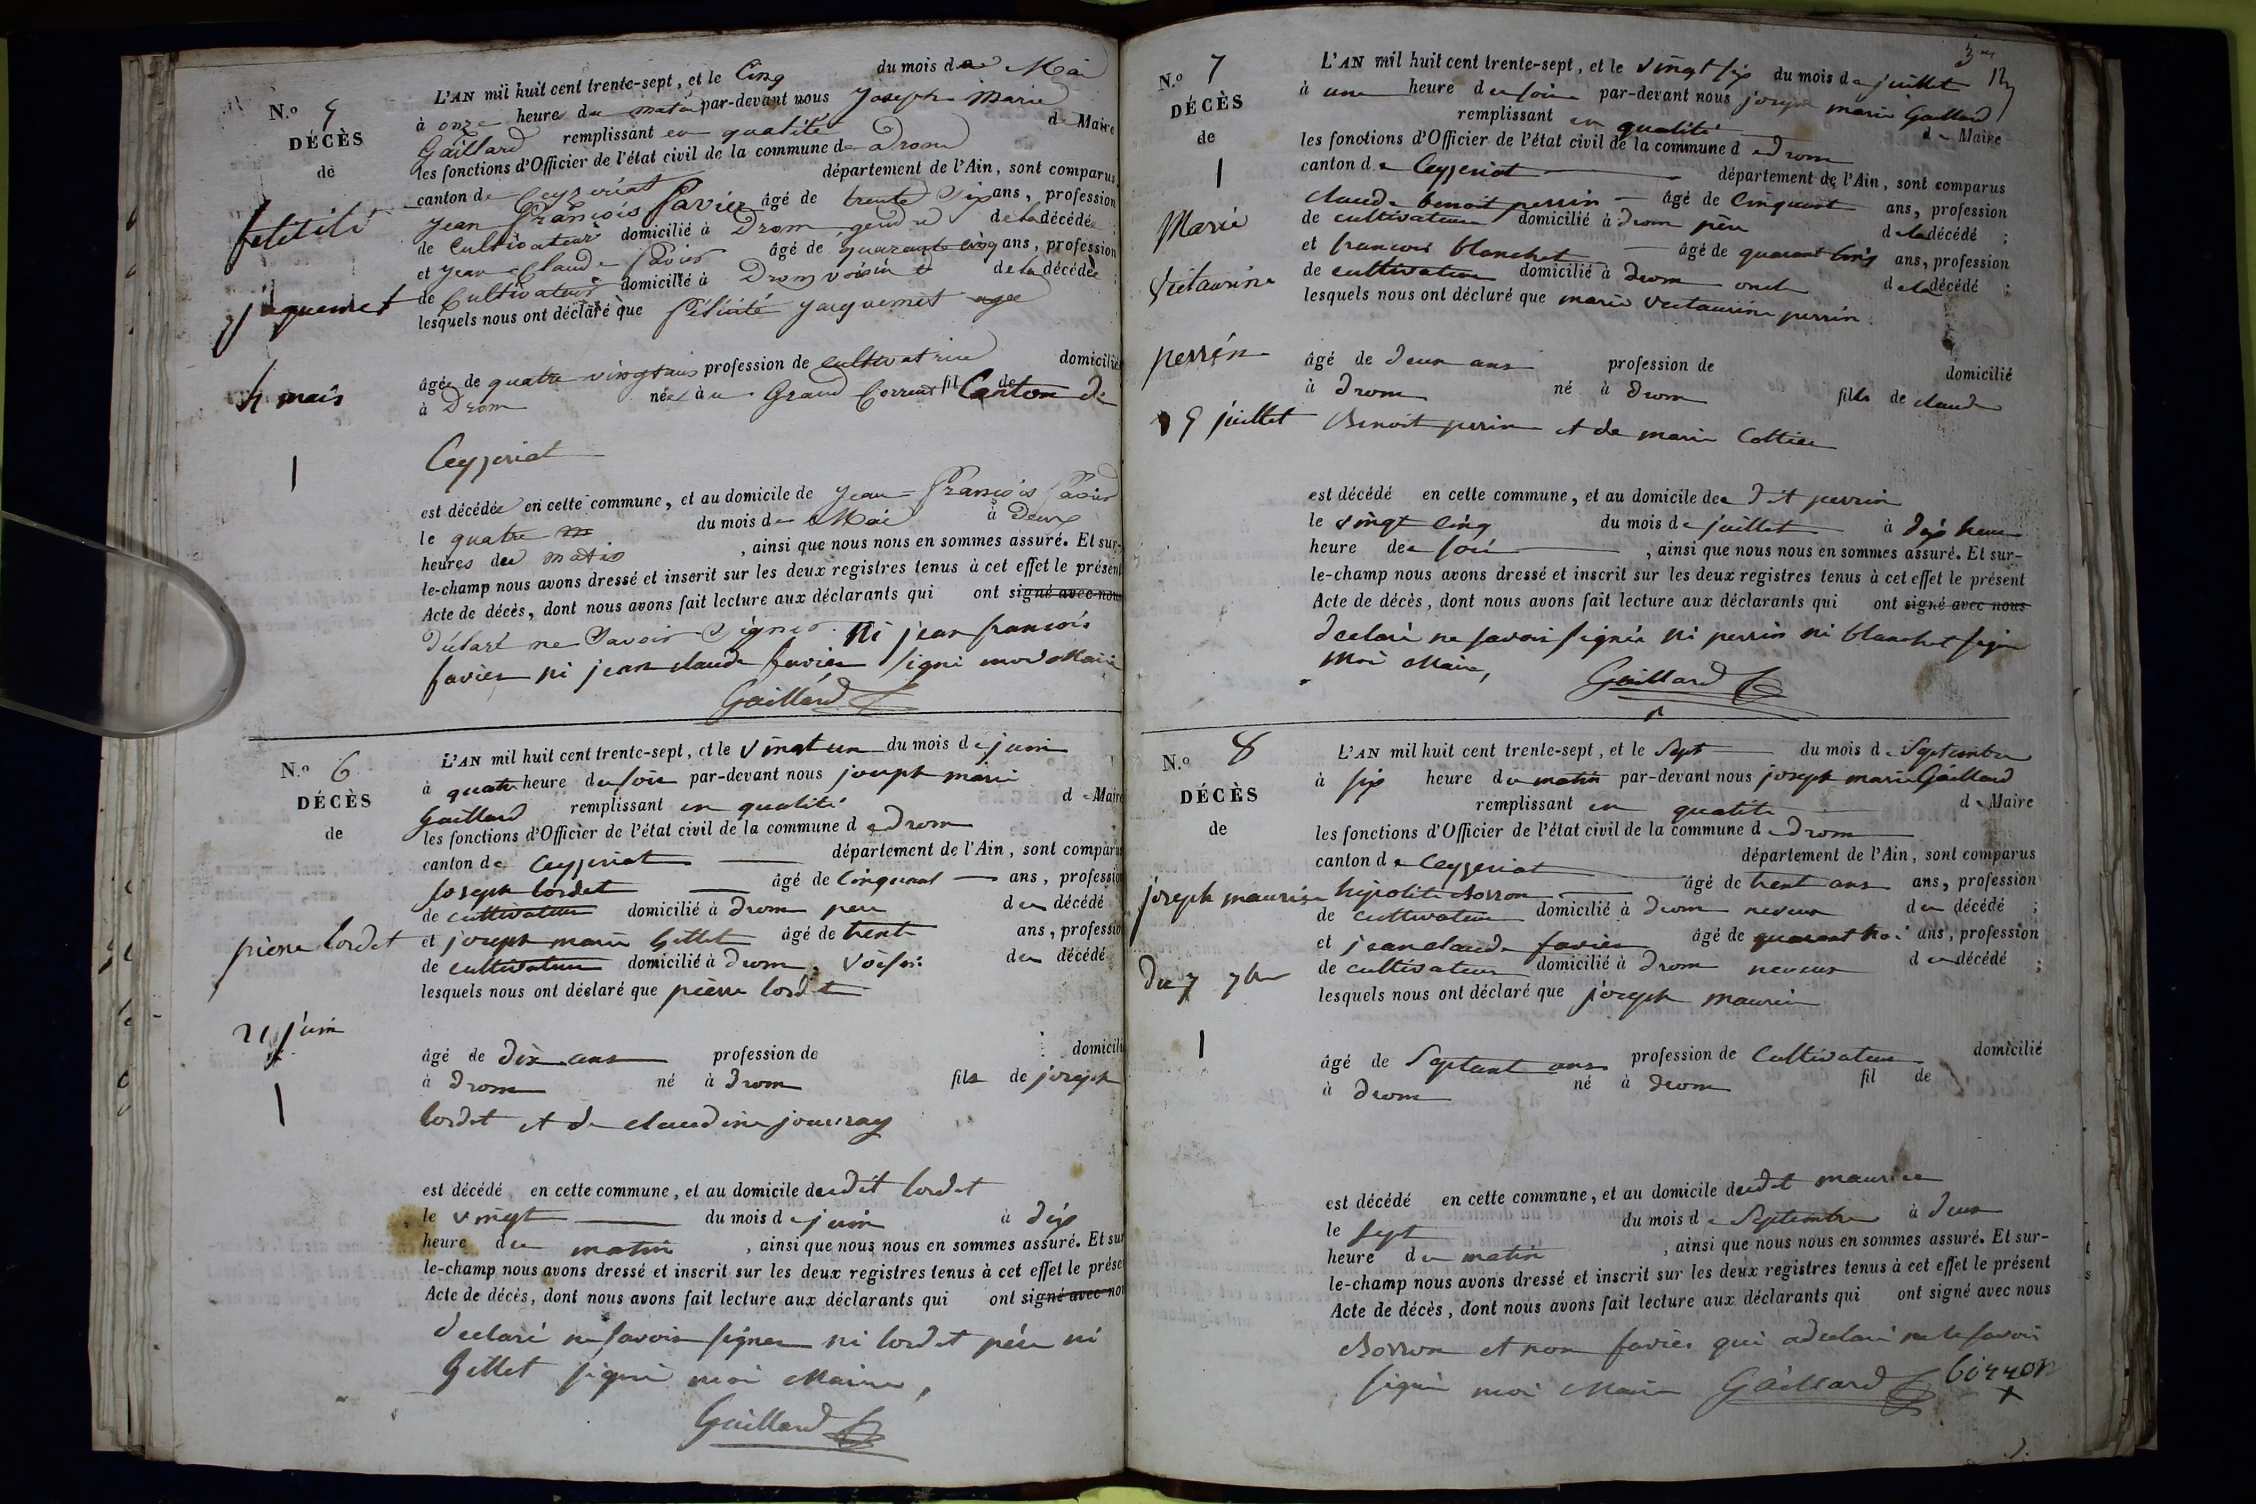 N.o 5
DÉCÈS
de
feliciti
jaquemet
4 mais
1
L'AN mil huit cent trente-sept, et le Cinq du mois de Mai
à onze heures du matin par-devant nous Joseph Marie
Gaillard remplissant en qualité de Maire
les fonctions d'Officier de l'état civil de la commune de Drom
canton de Ceyzeriat département de l'Ain, sont comparus
Jean François Favier âgé de trente Six ans, profession
de Cultivateur domicilié à Drom gendre de la décédée ;
et Jean Claude Favier âgé de quarante cinq ans, profession
de Cultivateur domicilié à Drom voisin de la décédée ;
lesquels nous ont déclaré que Félicité Jacquemet agee
âgée de quatre vingts ans profession de cultivatrice domiciliée
à Drom née à u Grand Corrent fil de Canton de
Ceyzeriat
est décédée en cette commune, et au domicile de Jean François Favier
le quatre du mois de Mai à Deux
heures du matin , ainsi que nous nous en sommes assuré. Et sur-
le-champ nous avons dressé et inscrit sur les deux registres tenus à cet effet le présent
Acte de décès, dont nous avons fait lecture aux déclarants qui ont signé avec nous
déclaré ne Savoir Signer. Ni jean francois
favier ni jean claude favier signé moi Maire
Gaillard
N.o 6
DÉCÈS
de
pierre lordet
21 juin
1
L'AN mil huit cent trente-sept, et le vingt un du mois de juin
à quatre heure du soir par-devant nous joseph marie
Gaillard remplissant en qualité de Maire
les fonctions d'Officier de l'état civil de la commune de Drom
canton de Ceyzeriat département de l'Ain, sont comparus
Joseph lordet âgé de cinquant ans, profession
de cultivateur domicilié à Drom pere du décédé
et joseph marie Gillet âgé de trente ans, profession
de cultivateur domicilié à Drom, voisin du décédé
lesquels nous ont déclaré que pierre lordet
âgé de dix ans profession de domicilié
à Drom né à Drom fils de joseph
lordet et de claudine jourray
est décédé en cette commune, et au domicile dudit lordet
le vingt du mois de juin à dix
heure du matin , ainsi que nous nous en sommes assuré. Et sur
le-champ nous avons dressé et inscrit sur les deux registres tenus à cet effet le présent
Acte de décès, dont nous avons fait lecture aux déclarants qui ont signé avec nous
declaré ne savoir signer ni lordet père ni
Gillet signé moi Maire,
Gaillard
N.o 7
DÉCÈS
de
1
Marie
Victaurine
perrin
25 juillet
L'AN mil huit cent trente-sept, et le vingt six du mois de juillet
à une heure du soir par-devant nous joseph marie Gaillard
remplissant en qualité de Maire
les fonctions d'Officier de l'état civil de la commune de Drom
canton de Ceyzeriat département de l'Ain, sont comparus
claude benoit perrin âgé de Cinquant ans, profession
de cultivateur domicilié à Drom père de la décédé ;
et francois blanchet âgé de quarant trois ans, profession
de cultivateur domicilié à Drom oncle de la décédé ;
lesquels nous ont déclaré que marie victaurine perrin
âgé de deux ans profession de domicilié
à Drom né à Drom fille de claude
Benoit perrin et de marie Cottier
est décédé en cette commune, et au domicile de dit perrin
le vingt cinq du mois de juillet à dix heure
heure de soir , ainsi que nous nous en sommes assuré. Et sur-
le-champ nous avons dressé et inscrit sur les deux registres tenus à cet effet le présent
Acte de décès, dont nous avons fait lecture aux déclarants qui ont signé avec nous
declaré ne savoir signer ni perrin ni blanchet signé
Moi Maire,
Gaillard
N.o 8
DÉCÈS
de
joseph maurice
du 7 7bre
1
L'AN mil huit cent trente-sept, et le Sept du mois de Septembre
à six heure du matin par-devant nous joseph marie Gaillard
remplissant en qualité de Maire
les fonctions d'Officier de l'état civil de la commune de Drom
canton de Ceyzeriat département de l'Ain, sont comparus
hipolite Borron âgé de trent ans ans, profession
de cultivateur domicilié à Drom neveux du décédé ;
et jean claude favier âgé de quarant trois ans, profession
de cultivateur domicilié à Drom neveux du décédé ;
lesquels nous ont déclaré que joseph maurice
âgé de Septant ans profession de Cultivateur domicilié
à Drom né à Drom fil de
est décédé en cette commune, et au domicile dudit maurice
le sept du mois de Septembre à deux
heure du matin , ainsi que nous nous en sommes assuré. Et sur-
le-champ nous avons dressé et inscrit sur les deux registres tenus à cet effet le présent
Acte de décès, dont nous avons fait lecture aux déclarants qui ont signé avec nous
Borron et non favier qui a declaré ne le savoir
signé moi Maire Gaillard borron